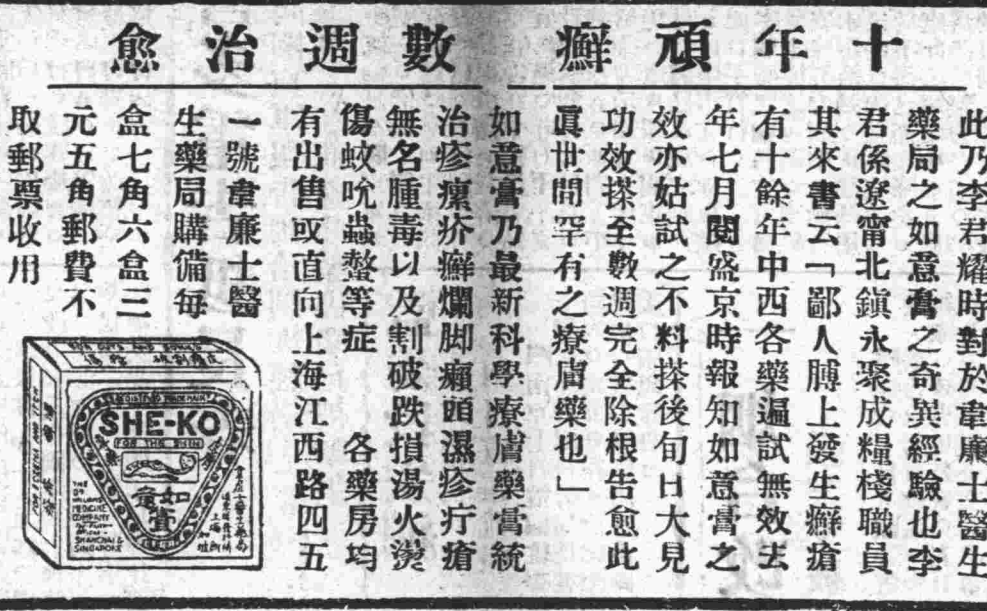 十年頑癬 數週治愈
此乃李君耀時對於韋廉士醫生
藥局之如意膏之奇異經驗也李
君係遼甯北鎮永聚成糧棧職員
其來書云「鄙人膊上發生癬瘡
有十餘年中西各藥遍試無效去
年七月閱盛京時報知如意膏之
效亦姑試之不料搽後旬日大見
功效搽至數週完全除根告愈此
眞世間罕有之療膚藥也」
如意膏乃最新科學療膚藥膏統
治疹瘰疥癬爛脚癩頭濕疹疔瘡
無名腫毒以及割破跌損湯火燙
傷蚊吮蟲螫等症 各藥房均
有出售或直向上海江西路四五
一號韋廉士醫
生藥局購備每
盒七角六盒三
元五角郵費不
取郵票收用
SHE-KO
FOR THE SKIN
如意膏
THE
DR WILLIAMS
MEDICINE
COMPANY
SHANGHAI &
SINGAPORE